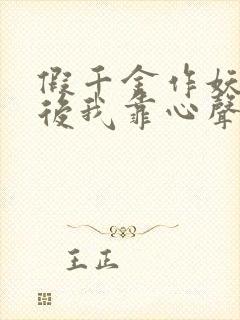 假千金作妖
後我靠心聲
王正